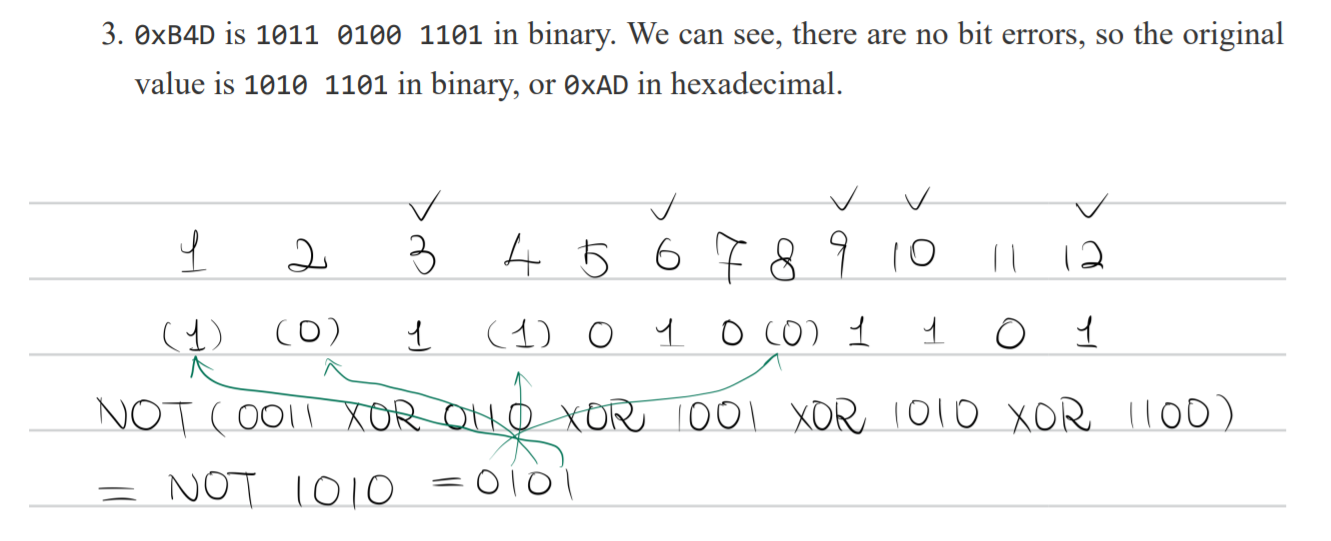 3. 0xB4D is 1011 0100 1101 in binary. We can see, there are no bit errors, so the original
value is 1010 1101 in binary, or 0xAD in hexadecimal.
1 2 3 4 5 6 7 8 9 10 11 12
(1) (0) 1 (1) 0 1 0 (0) 1 1 0 1
NOT (0011 XOR 0110 XOR 1001 XOR 1010 XOR 1100)
= NOT 1010 = 0101